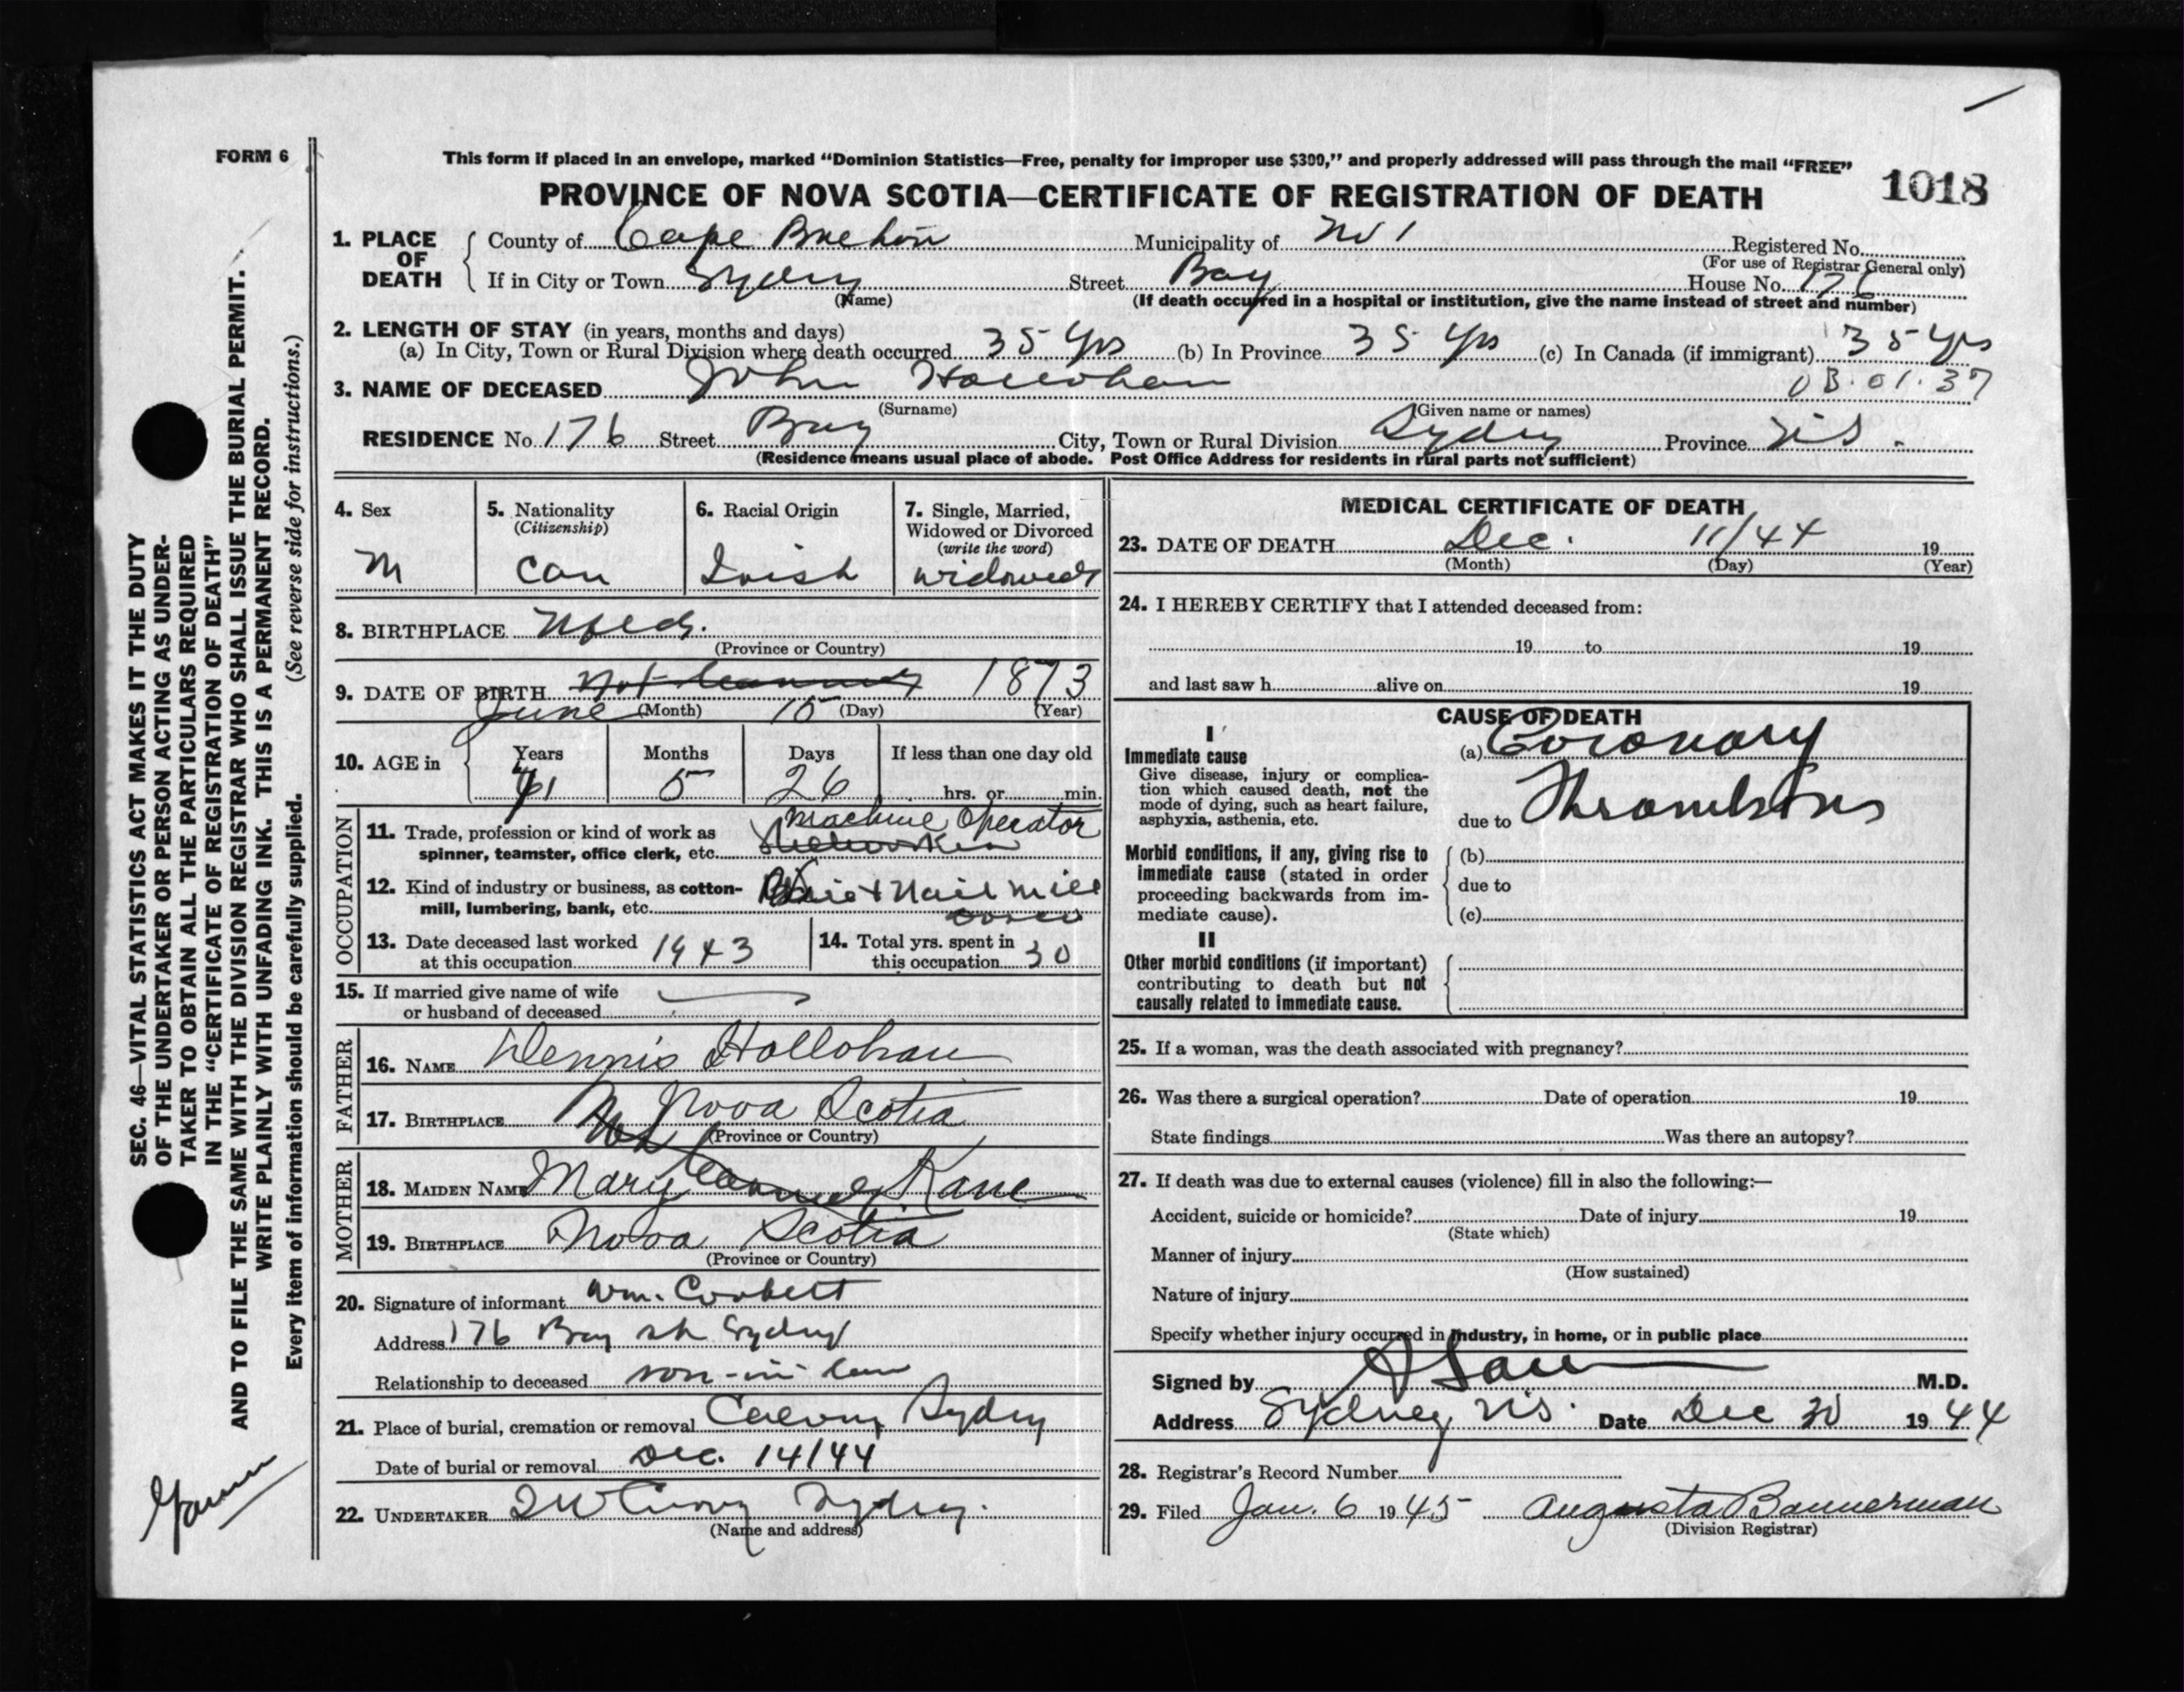 FORM 6
This form if placed in an envelope, marked “Dominion Statistics—Free, penalty for improper use $300,” and properly addressed will pass through the mail “FREE”
PROVINCE OF NOVA SCOTIA—CERTIFICATE OF REGISTRATION OF DEATH
1018
1. PLACE OF DEATH
County of Cape Breton Municipality of No 1 Registered No.
(For use of Registrar General only)
If in City or Town Sydney Street Bay House No. 176
(Name) (If death occurred in a hospital or institution, give the name instead of street and number)
2. LENGTH OF STAY (in years, months and days)
(a) In City, Town or Rural Division where death occurred 35 Yrs (b) In Province 35 Yrs (c) In Canada (if immigrant) 35 Yrs
3. NAME OF DECEASED John Hollohan 03.01.37
(Surname) (Given name or names)
RESIDENCE No. 176 Street Bay City, Town or Rural Division Sydney Province N.S.
(Residence means usual place of abode. Post Office Address for residents in rural parts not sufficient)
4. Sex
M
5. Nationality
(Citizenship)
Can
6. Racial Origin
Irish
7. Single, Married,
Widowed or Divorced
(write the word)
widowed
8. BIRTHPLACE Nfld.
(Province or Country)
9. DATE OF BIRTH Not 1873
June (Month) 15 (Day) (Year)
10. AGE in
Years Months Days If less than one day old
71 5 26 hrs. or min.
OCCUPATION
11. Trade, profession or kind of work as Machine Operator
spinner, teamster, office clerk, etc. Steelworker
12. Kind of industry or business, as cotton- & Nail Mill
mill, lumbering, bank, etc.
13. Date deceased last worked
at this occupation 1943
14. Total yrs. spent in
this occupation 30
15. If married give name of wife
or husband of deceased
FATHER
16. NAME Dennis Hollohan
17. BIRTHPLACE Nova Scotia
(Province or Country)
MOTHER
18. MAIDEN NAME Mary Kane
19. BIRTHPLACE Nova Scotia
(Province or Country)
20. Signature of informant Wm. Corbett
Address 176 Bay St Sydney
Relationship to deceased son-in-law
21. Place of burial, cremation or removal Calvary Sydney
Date of burial or removal Dec. 14/44
22. UNDERTAKER Sydney.
(Name and address)
MEDICAL CERTIFICATE OF DEATH
23. DATE OF DEATH Dec. 11/44 19
(Month) (Day) (Year)
24. I HEREBY CERTIFY that I attended deceased from:
19 to 19
and last saw h alive on 19
CAUSE OF DEATH
I
Immediate cause
Give disease, injury or complica-
tion which caused death, not the
mode of dying, such as heart failure,
asphyxia, asthenia, etc.
(a) Coronary
due to Thrombosis
Morbid conditions, if any, giving rise to
immediate cause (stated in order
proceeding backwards from im-
mediate cause).
(b)
due to
(c)
II
Other morbid conditions (if important)
contributing to death but not
causally related to immediate cause.
25. If a woman, was the death associated with pregnancy?
26. Was there a surgical operation? Date of operation 19
State findings Was there an autopsy?
27. If death was due to external causes (violence) fill in also the following:—
Accident, suicide or homicide? Date of injury 19
(State which)
Manner of injury
(How sustained)
Nature of injury
Specify whether injury occurred in industry, in home, or in public place
Signed by M.D.
Address Sydney N.S. Date Dec 30 1944
28. Registrar's Record Number
29. Filed Jan. 6 1945 Augusta Bannerman
(Division Registrar)
SEC. 46—VITAL STATISTICS ACT MAKES IT THE DUTY
OF THE UNDERTAKER OR PERSON ACTING AS UNDER-
TAKER TO OBTAIN ALL THE PARTICULARS REQUIRED
IN THE “CERTIFICATE OF REGISTRATION OF DEATH”
AND TO FILE THE SAME WITH THE DIVISION REGISTRAR WHO SHALL ISSUE THE BURIAL PERMIT.
WRITE PLAINLY WITH UNFADING INK. THIS IS A PERMANENT RECORD.
Every item of information should be carefully supplied. (See reverse side for instructions.)